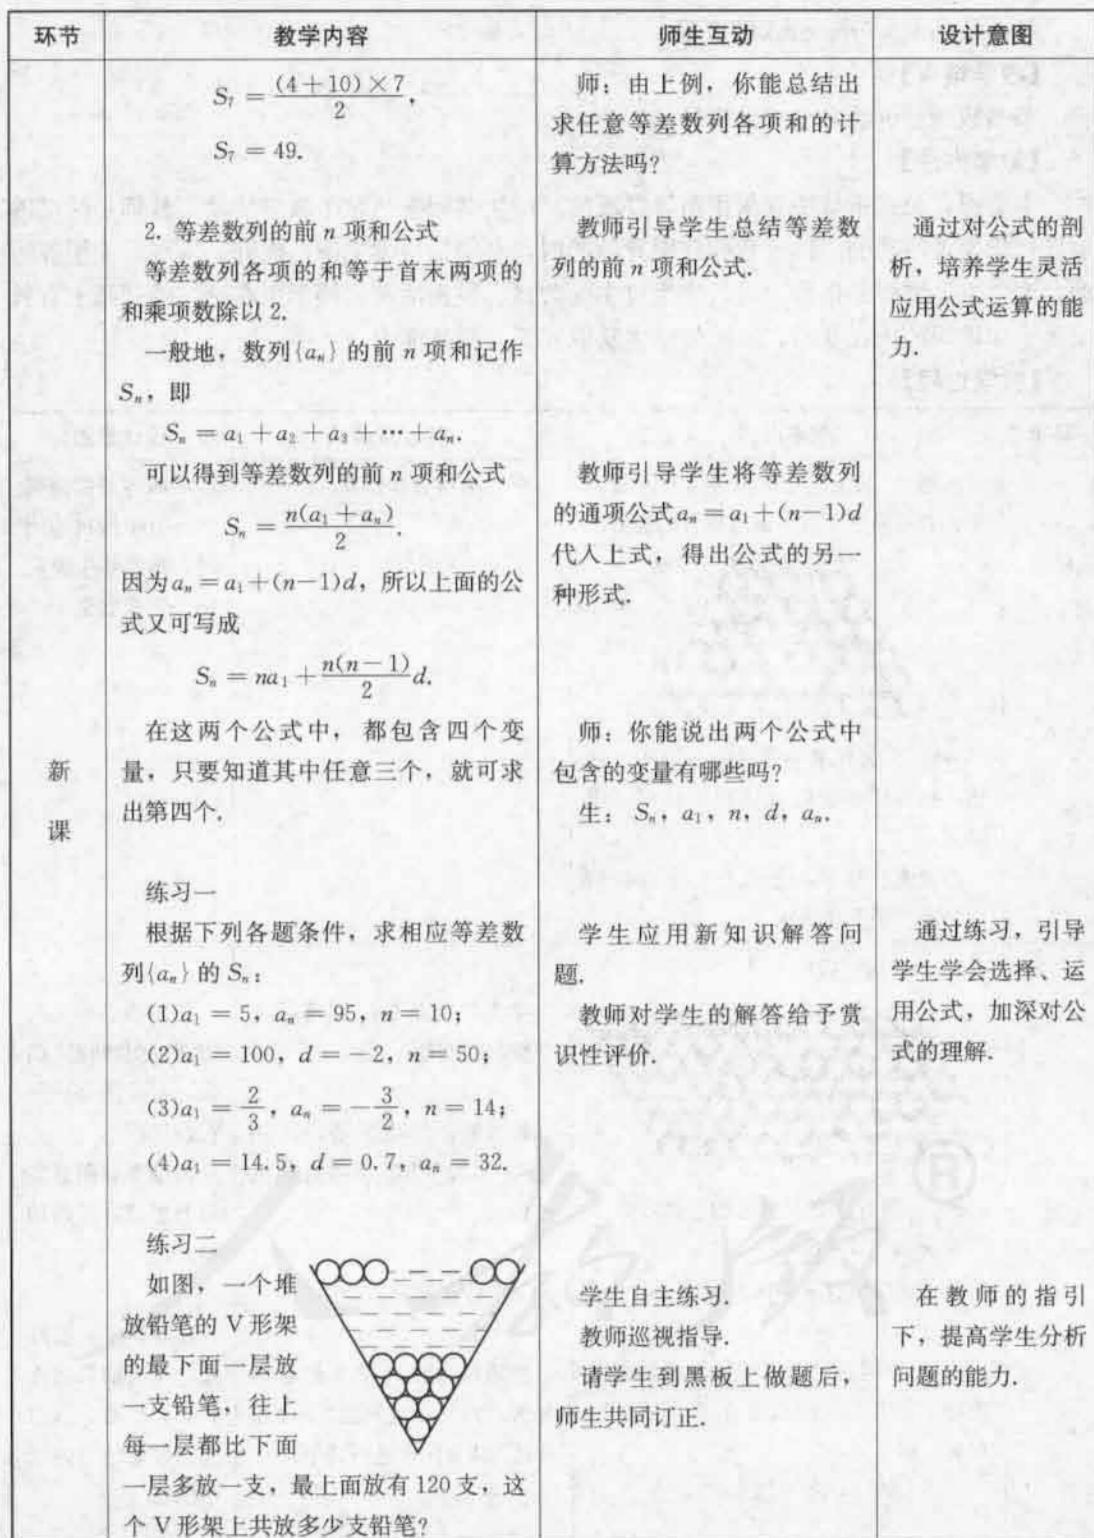 环节 教学内容 师生互动 设计意图
新
课
S₇ = (4+10)×7/2,
S₇ = 49.
2. 等差数列的前 n 项和公式
等差数列各项的和等于首末两项的
和乘项数除以 2.
一般地，数列{aₙ} 的前 n 项和记作
Sₙ，即
Sₙ = a₁ + a₂ + a₃ + ⋯ + aₙ.
可以得到等差数列的前 n 项和公式
Sₙ = n(a₁ + aₙ)/2.
因为 aₙ = a₁ + (n−1)d，所以上面的公
式又可写成
Sₙ = na₁ + n(n−1)/2 d.
在这两个公式中，都包含四个变
量，只要知道其中任意三个，就可求
出第四个.
练习一
根据下列各题条件，求相应等差数
列{aₙ} 的 Sₙ：
(1)a₁ = 5，aₙ = 95，n = 10；
(2)a₁ = 100，d = −2，n = 50；
(3)a₁ = 2/3，aₙ = −3/2，n = 14；
(4)a₁ = 14.5，d = 0.7，aₙ = 32.
练习二
如图，一个堆
放铅笔的 V 形架
的最下面一层放
一支铅笔，往上
每一层都比下面
一层多放一支，最上面放有 120 支，这
个 V 形架上共放多少支铅笔?
师：由上例，你能总结出
求任意等差数列各项和的计
算方法吗?
教师引导学生总结等差数
列的前 n 项和公式.
教师引导学生将等差数列
的通项公式 aₙ = a₁ + (n−1)d
代入上式，得出公式的另一
种形式.
师：你能说出两个公式中
包含的变量有哪些吗?
生：Sₙ，a₁，n，d，aₙ.
学生应用新知识解答问
题.
教师对学生的解答给予赏
识性评价.
学生自主练习.
教师巡视指导.
请学生到黑板上做题后，
师生共同订正.
通过对公式的剖
析，培养学生灵活
应用公式运算的能
力.
通过练习，引导
学生学会选择、运
用公式，加深对公
式的理解.
在教师的指引
下，提高学生分析
问题的能力.